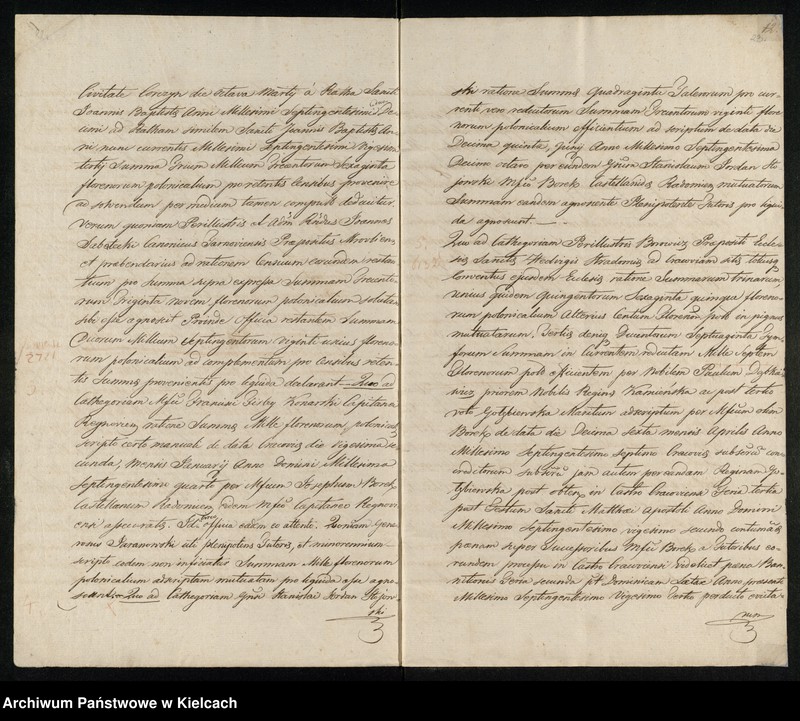 Civitate Corczyn die octava Martij à Festo Sancti
Joannis Baptista Anni Millesimi Septingentesimi De-
cimi ad Festum similem Sancti Joannis Baptista An-
ni nunc currentis Millesimi Septingentesimi Vigesimi
tertij Summa Trium Millium Trecentorum Sexaginta
florenorum polonicalium pro retentis Censibus provenire
ac solvendum per nudum tamen computum deducitur.
Verum quoniam Perillustris et Adm Rndus Joannes
Dabelecki Canonicus Tarnoviensis Præpositus
et præbendarius ad rationem Censuum eorundem restan-
tium pro summa supra expressa Summam Trecento-
rum Triginta novem florenorum polonicalium solutam
sibi esse agnoscit Proinde Officia restantem Summam
Duorum Millium Septingentorum Viginti unius floreno-
rum polonicalium ad complementum pro Censibus reten-
tis Summis provenientis pro liquida declarant. Quo ad
Cathegoriam Mgfci Francisci Felix Konarski Capitanei
ratione Summæ Mille florenorum polonical
scripto certo manuali de data Cracoviæ die Vigesima se-
cunda, mensis Januarij Anno Domini Millesimo
Septingentesimo quarto per Mfcum Josephum Borek
Castellanum Radomien eidem Mfco Capitaneo
assecuratæ. Officia eadem eo attento. Quoniam Gene-
rosus Taranowski uti plenipotens Tutoris, et minorennium
scripto eodem non inficiatur Summam Mille florenorum
polonicalium adscriptam mutuatam pro liquida esse agno-
Quo ad Cathegoriam Gfsi Stanislai Jordan Stojow-
ski
ski ratione Summæ Quadraginta Talerorum pro cur-
renti vero reductorum Summam Trecentorum viginti flore-
norum polonicalium efficientium ad scriptum de data die
Decima quinta, Junij Anno Millesimo Septingentesimo
Decimo octavo per eundem Gfsum Stanislaum Jordan Sto-
jowski Mfco Borek Castellanidæ Radomien mutuatorum
Summam eandem agnoscente Plenipotente Tutoris pro liqui-
da agnoscunt.
Quo ad Cathegoriam Perillustris Præpositi Eccle-
siæ Sanctæ Hedvigis Stradomiæ ad Cracoviam sitæ totiusq
Conventus ejusdem Ecclesiæ ratione Summarum trinarum
unius quidem Quingentorum Sexaginta quinque floreno-
rum polonicalium Alterius Centum florenorum polo in pignus
mutuatarum, Tertiæ denique Ducentorum Septuaginta
forum Summam in currentem reductam Mille Septem
florenorum polo efficientem per Nobilem Paulum
wicz priorem Nobilis Reginæ Kamieńska ac post tertio
voto Gołębiowska Maritum adscriptum per Mfcum olim
Borek de data die Decima sexta mensis Aprilis Anno
Millesimo Septingentesimo Septimo Cracoviæ con-
creditorum jam autem per eandem Reginam Go-
łębiowska post in Castro Cracoviensi Feria tertia
post Festum Sancti Matthæi Apostoli Anno Domini
Millesimo Septingentesimo vigesimo secundo contumaciæ
pœnam super Successoribus Mfci Borek a Tutoribus eo-
rundem præceptu in Castro Cracoviensi videlicet pœna Ban-
nitionis Feria secunda post Dominicam Lætare Anno præsenti
Millesimo Septingentesimo Vigesimo Tertio perducto evicta-
rum
Archiwum Państwowe w Kielcach